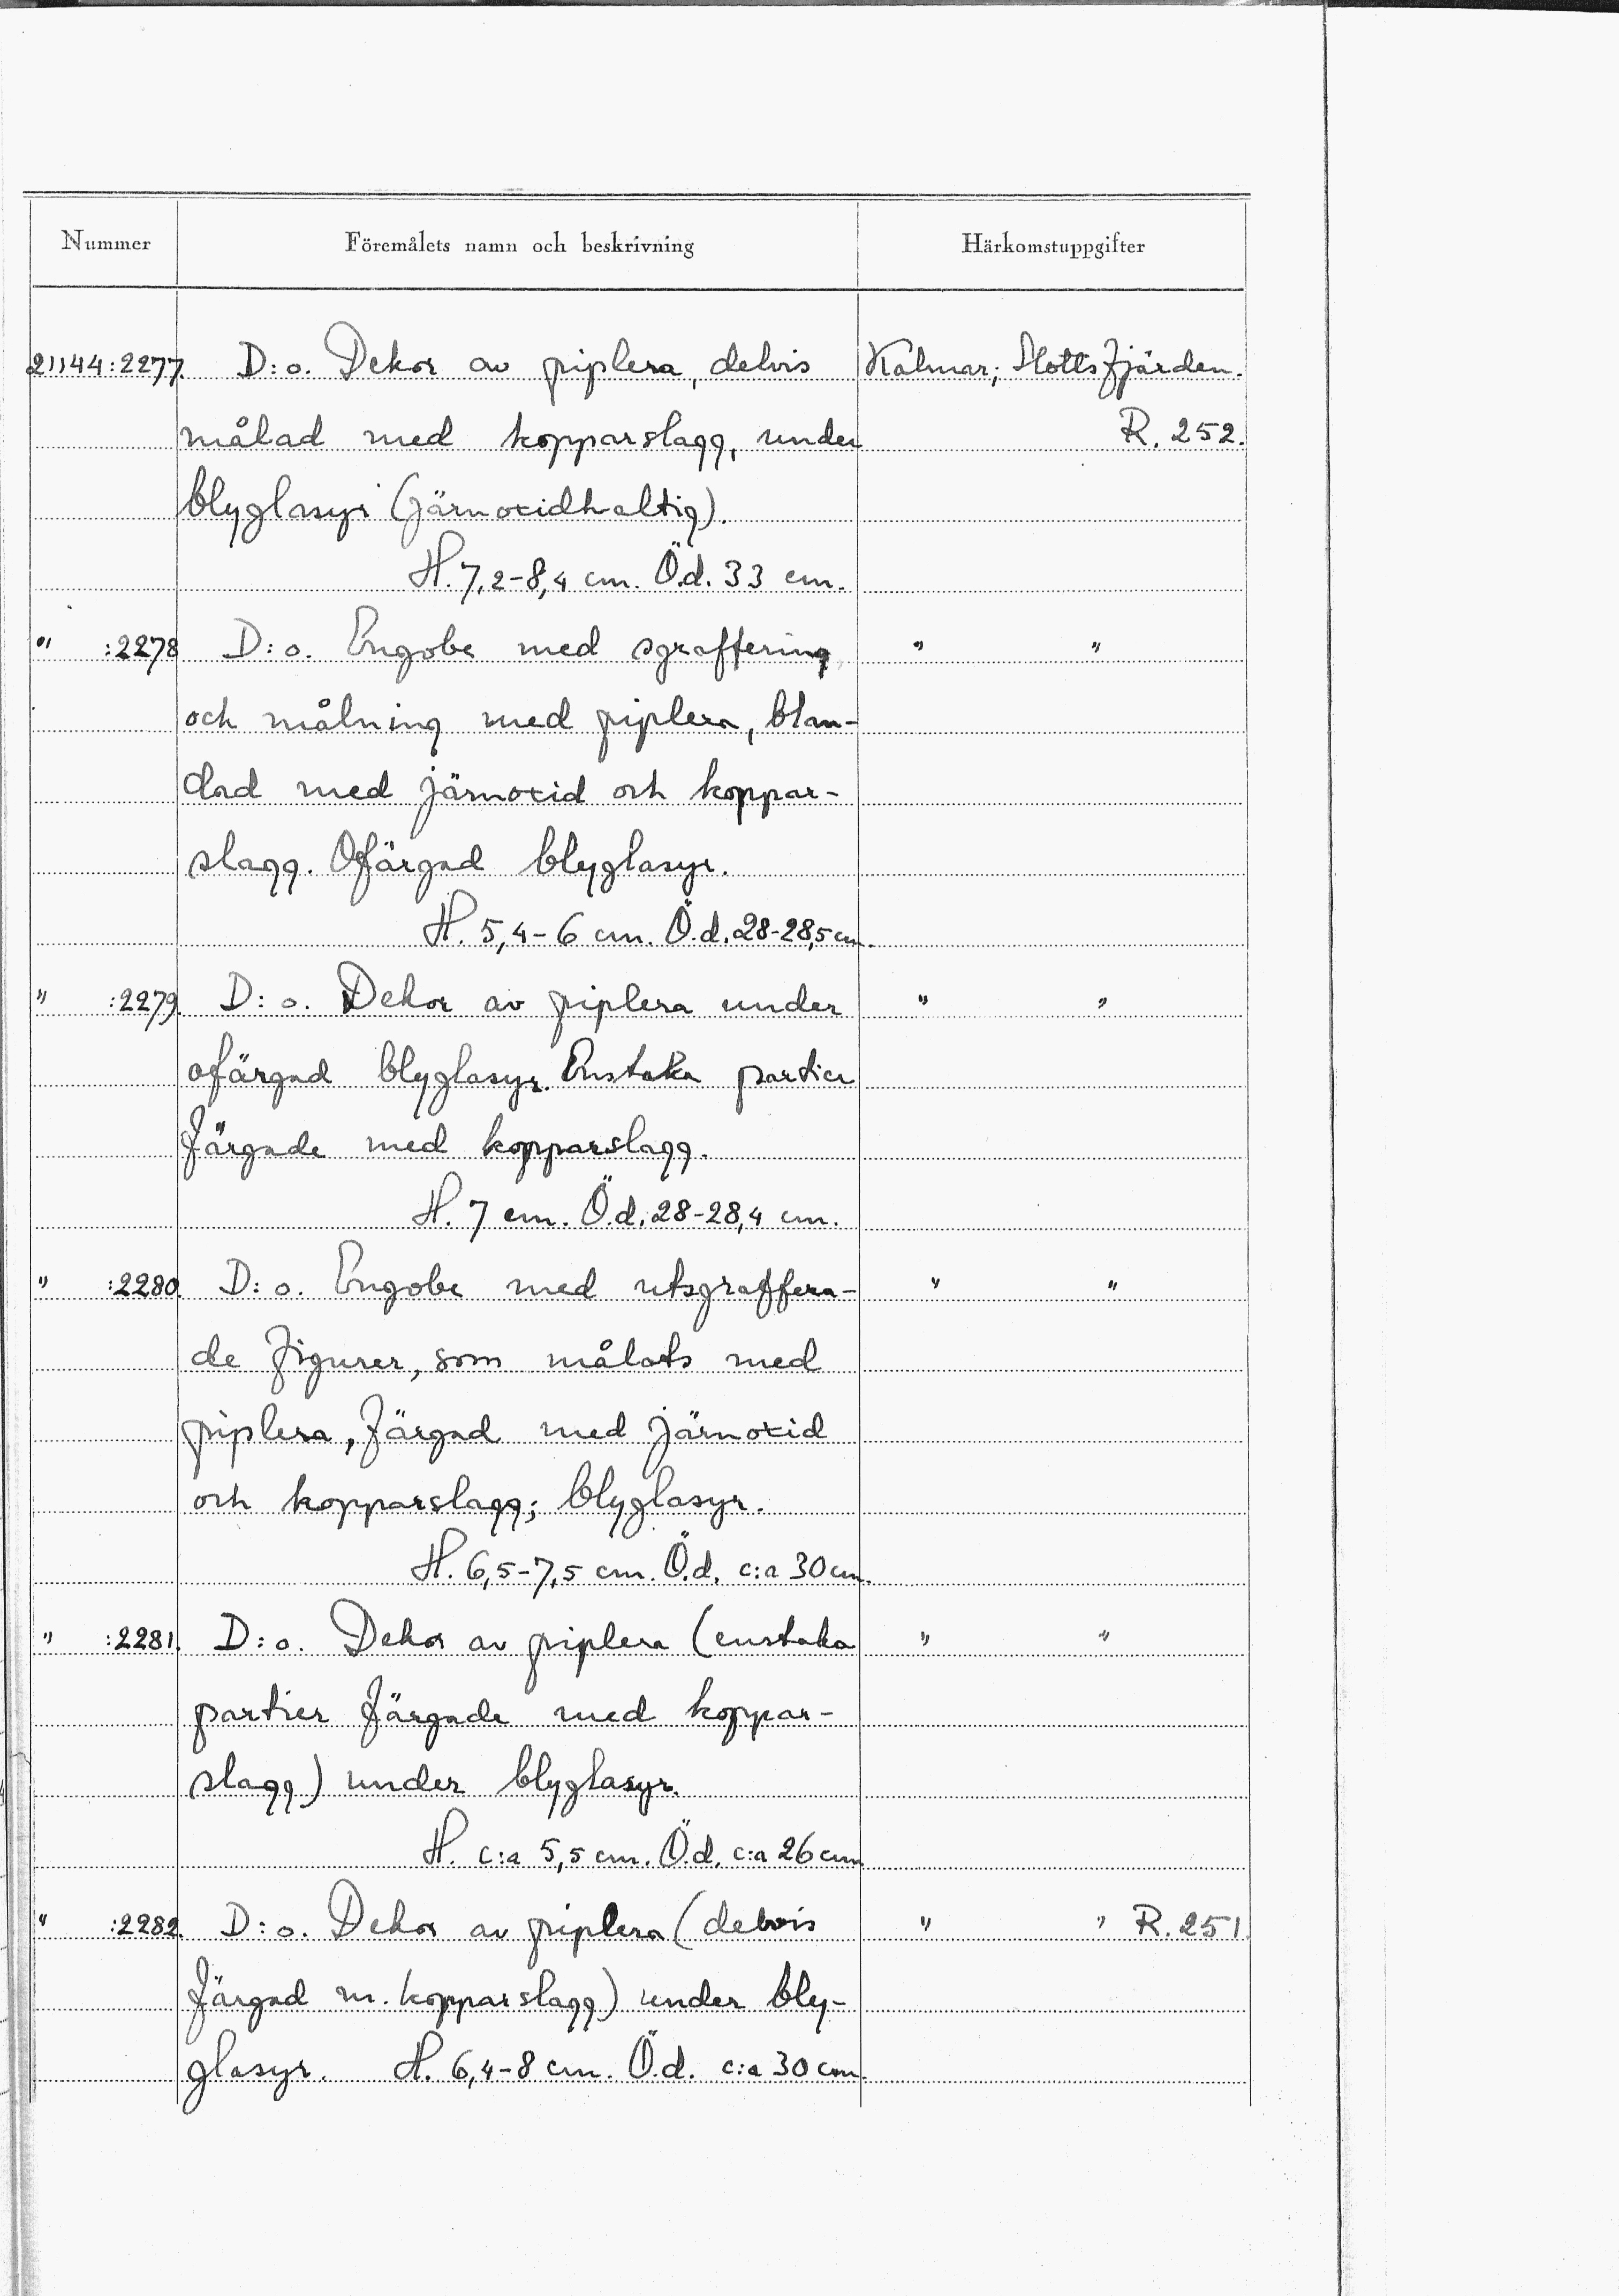 Nummer Föremålets namn och beskrivning Härkomstuppgifter
21144:2277. D:o. Dekor av piplera, delvis Kalmar; Slottsfjärden.
målad med kopparslagg, under R. 252.
blyglasyr (järnoxidhaltig).
H. 7,2-8,4 cm. Ö.d. 33 cm.
" :2278 D:o. Engobe med sgraffering " "
och målning med piplera, blan-
dad med järnoxid och koppar-
slagg. Ofärgad blyglasyr.
H. 5,4-6 cm. Ö.d. 28-28,5 cm.
" :2279. D:o. Dekor av piplera under " "
ofärgad blyglasyr. Enstaka partier
färgade med kopparslagg.
H. 7 cm. Ö.d. 28-28,4 cm.
" :2280. D:o. Engobe med utsgraffera- " "
de figurer, som målats med
piplera, färgad med järnoxid
och kopparslagg; blyglasyr.
H. 6,5-7,5 cm. Ö.d. c:a 30 cm.
" :2281. D:o. Dekor av piplera (enstaka " "
partier färgade med koppar-
slagg) under blyglasyr.
H. c:a 5,5 cm. Ö.d. c:a 26 cm
" :2282. D:o. Dekor av piplera (delvis " " R. 251.
färgad m. kopparslagg) under bly-
glasyr. H. 6,4-8 cm. Ö.d. c:a 30 cm.